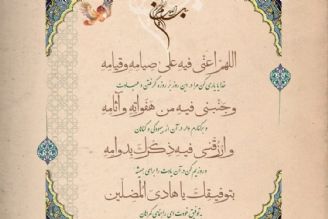 اللهم اعنی فیه علی صیامه وقیامه
خدایا یاری کن مرا در این روز بر روزه گرفتن و عبادت
وجنبنی فیه من هفواته وآثامه
و برکنارم دار در آن از بیهودگی و گناهان
وارزقنی فیه ذکرک بدوامه
و روزیم کن در آن یادت را برای همیشه
بتوفیقک یا هادی المضلین
به توفیق خودت ای راهنمای گمراهان